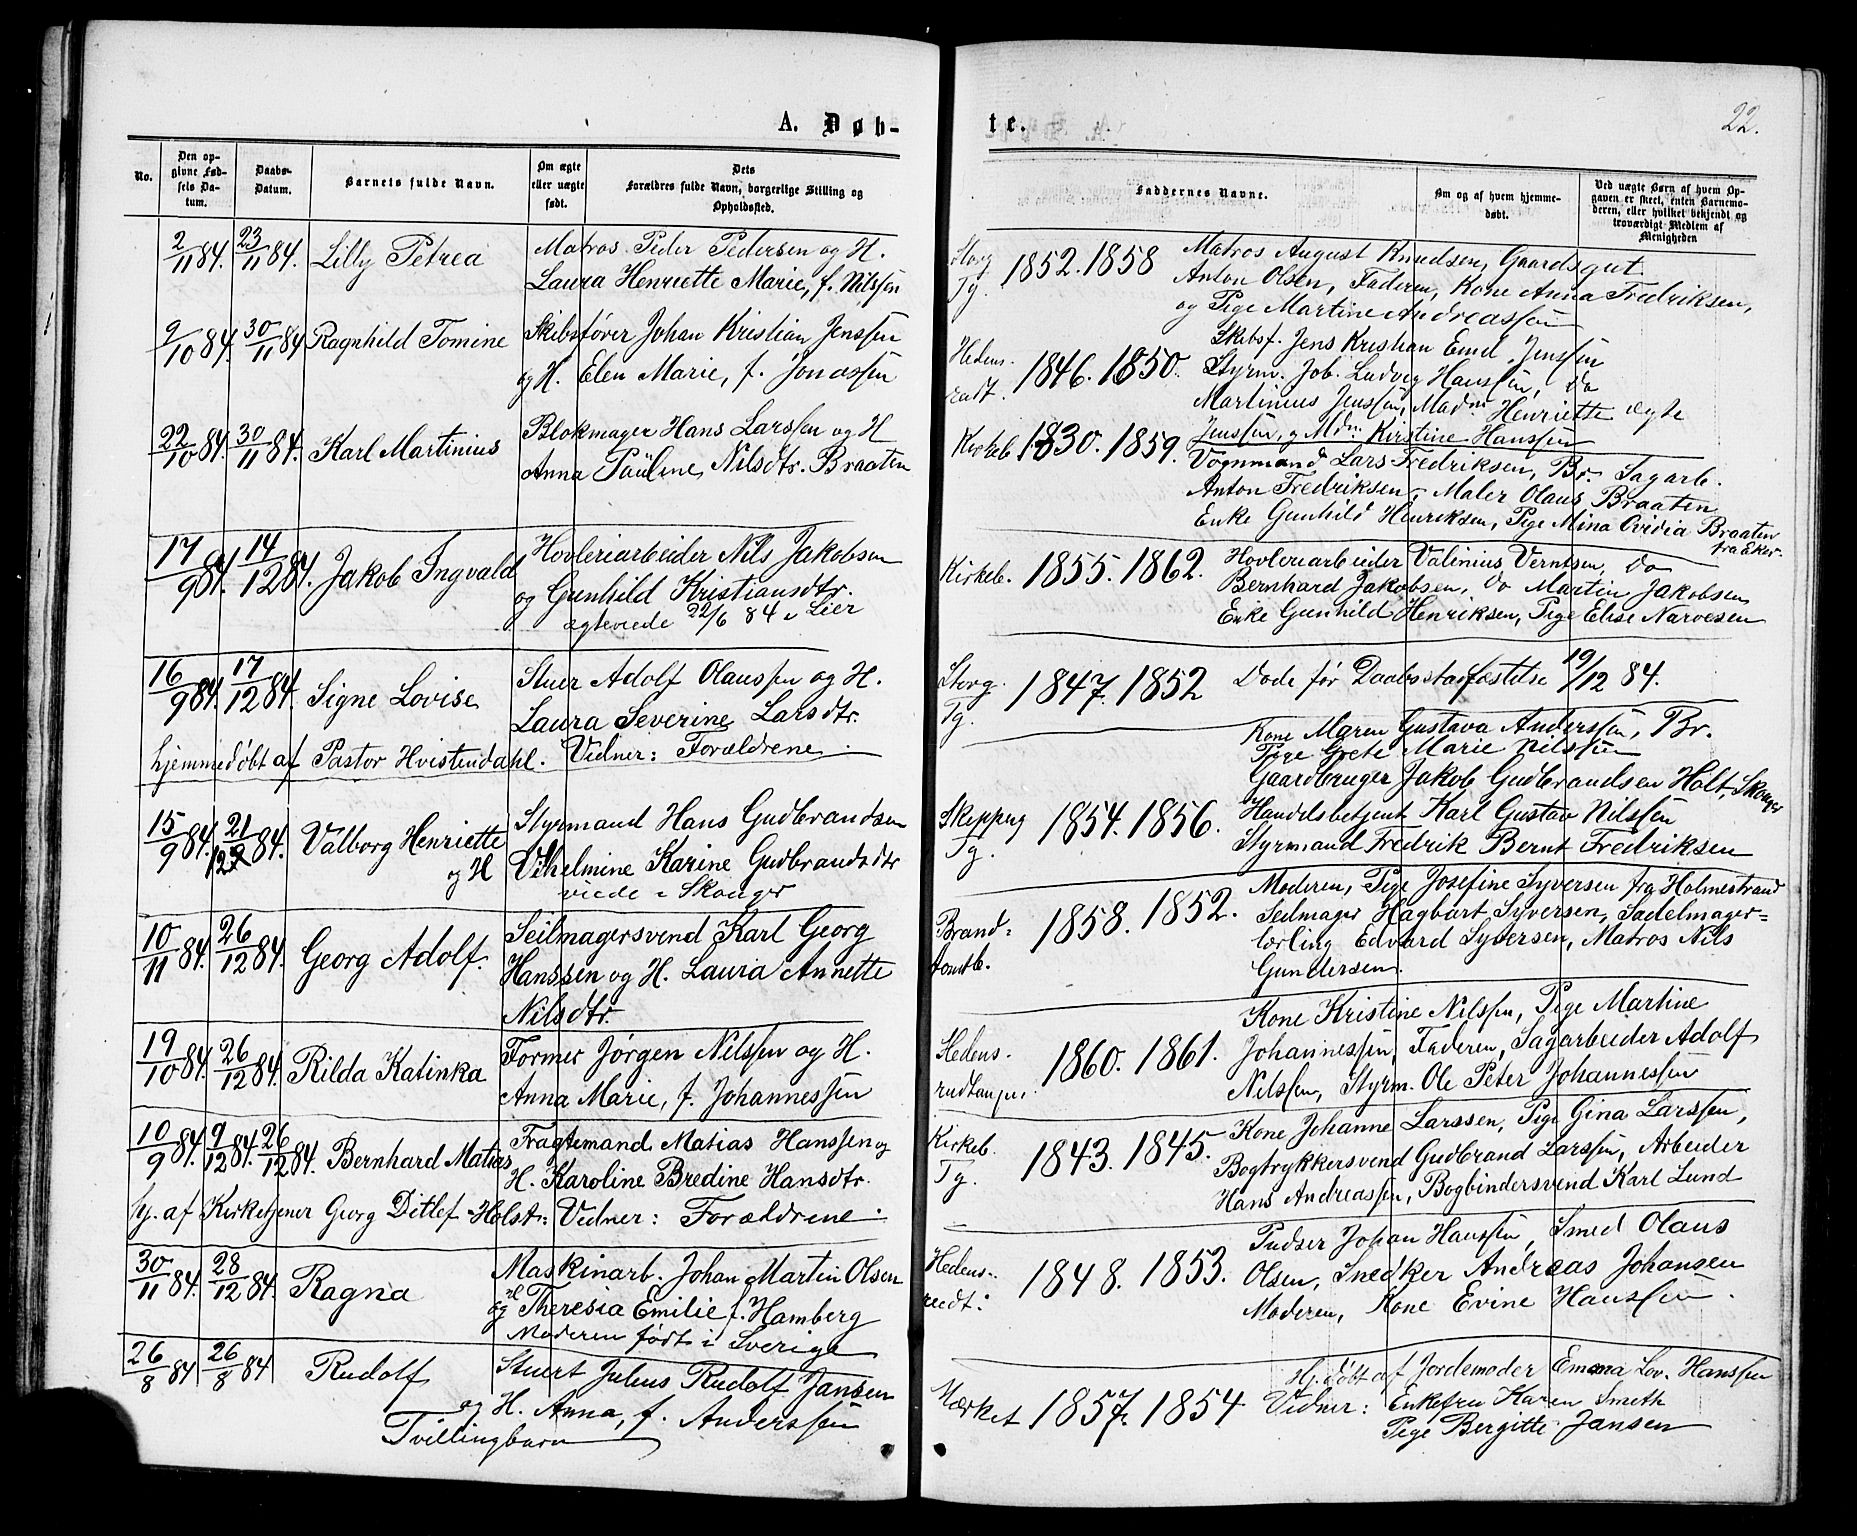 A. Døb-
No.
Den opgivne Fødsels Datum.
Daabs-Datum.
Barnets fulde Navn.
Om ægte eller uægte født.
Dets Forældres fulde Navn, borgerlige Stilling og Opholdssted.
2/11 84. 23/11 84. Lilly Petrea Matros Peder Pedersen og H.
Laura Henriette Marie, f. Nilssen
9/10 84. 30/11 84 Ragnhild Tomine Skibsfører Johan Kristian Jenssen
og H. Elen Marie, f. Jonassen
22/10 84. 30/11 84. Karl Martinius Blokmager Hans Larssen og H
Anna Pauline Nilsdtr. Braaten
17/9 84. 14/12 84. Jakob Ingvald Hovleriarbeider Nils Jakobsen
og Gunhild Kristiansdtr.
ægteviede 22/6 84 i Lier
16/9 84. 17/12 84. Signe Lovise Stuer Adolf Olaussen og H.
Laura Severine Larsdtr.
hjemmedøbt af Pastor Hvistendahl. Vidner: Forældrene.
15/9 84. 21/12 84. Valborg Henriette Styrmand Hans Gudbrandsen
og H Vilhelmine Karine Gudbrandsdtr
viede i Skoger
10/11 84. 26/12 84. Georg Adolf. Seilmagersvend Karl Georg
Hanssen og H. Laura Annette
Nilsdtr.
19/10 84. 26/12 84. Rilda Katinka Former Jørgen Nilssen og H.
Anna Marie, f. Johannessen
10/9 84. 9/12 84. 26/12 84. Bernhard Matias Fragtemand Matias Hanssen og
H. Karoline Bredine Hansdtr.
hj. af Kirketjener Georg Ditlef Holst: Vidner: Forældrene.
30/11 84. 28/12 84. Ragna Maskinarb. Johan Martin Olsen
og H Theresia Emilie f. Hamberg
Moderen født i Sverige
26/8 84 26/8 84 Rudolf Stuert Julius Rudolf Jansen
og H. Anna, f. Anderssen
Tvillingbarn
te.
22.
Faddernes Navne.
Om og af hvem hjemmedøbt.
Ved uægte Børn af hvem Opgaven er skeet, enten Barnemoderen, eller hvilket bekjendt og troværdigt Medlem af Menigheden
Storg Tg. 1852. 1858 Matros August Knudsen, Gaardsgut
Anton Olsen, Faderen, Kone Anna Fredriksen,
og Pige Martine Andreassen
Hedens- 1846. 1850. Skibsf. Jens Kristian Emil Jenssen
Styrm. Joh. Ludvig Hanssen, Do
Martinius Jenssen, Madm Henriette
Jenssen, og Mdm. Kirstine Hanssen
Kirkeb 1830. 1859. Vognmand Lars Fredriksen, Br. Sagarb.
Anton Fredriksen, Maler Olaus Braaten
Enke Gunhild Henriksen, Pige Mina Ovidia Braaten
fra Eker.
Kirkeb. 1855. 1862. Hovleriarbeider Valinius Verntsen, Do
Bernhard Jakobsen, Do Martin Jakobsen
Enke Gunhild Henriksen, Pige Elise Narvesen
Storg. Tg. 1847. 1852 Døde før Daabsstadfæstelse 19/12 84.
Kone Maren Gustava Anderssen, Br.
Pige Grete Marie Nilssen
Skippug Tg. 1854. 1856. Gaardbruger Jakob Gudbrandsen Holt, Skoger
Handelsbetjent Karl Gustav Nilssen
Styrmand Fredrik Bernt Fredriksen
Brand-tomtb. 1858. 1852. Moderen, Pige Josefine Syversen fra Holmestrand
Seilmager Hagbart Syversen, Sadelmager-
lærling Edvard Syversen, Matros Nils
Gundersen.
1860. 1861. Kone Kristine Nilssen, Pige Martine
Johannessen, Faderen, Sagarbeider Adolf
Nilssen, Styrm. Ole Peter Johannessen
Kirkeb. Tg. 1843. 1845. Kone Johanne Larssen, Pige Gina Larssen,
Bogtrykkersvend Gudbrand Larssen, Arbeider
Hans Andreassen, Bogbindersvend Karl Lund
1848. 1853. Pudser Johan Hanssen, Smed Olaus
Olsen, Snedker Andreas Johansen
Moderen, Kone Evine Hanssen.
Hj. døbt af Jordemoder Emma Lov. Hanssen
1857. 1854 Vidner: Enkefru Karen Smith
Pige Bergitte Jansen